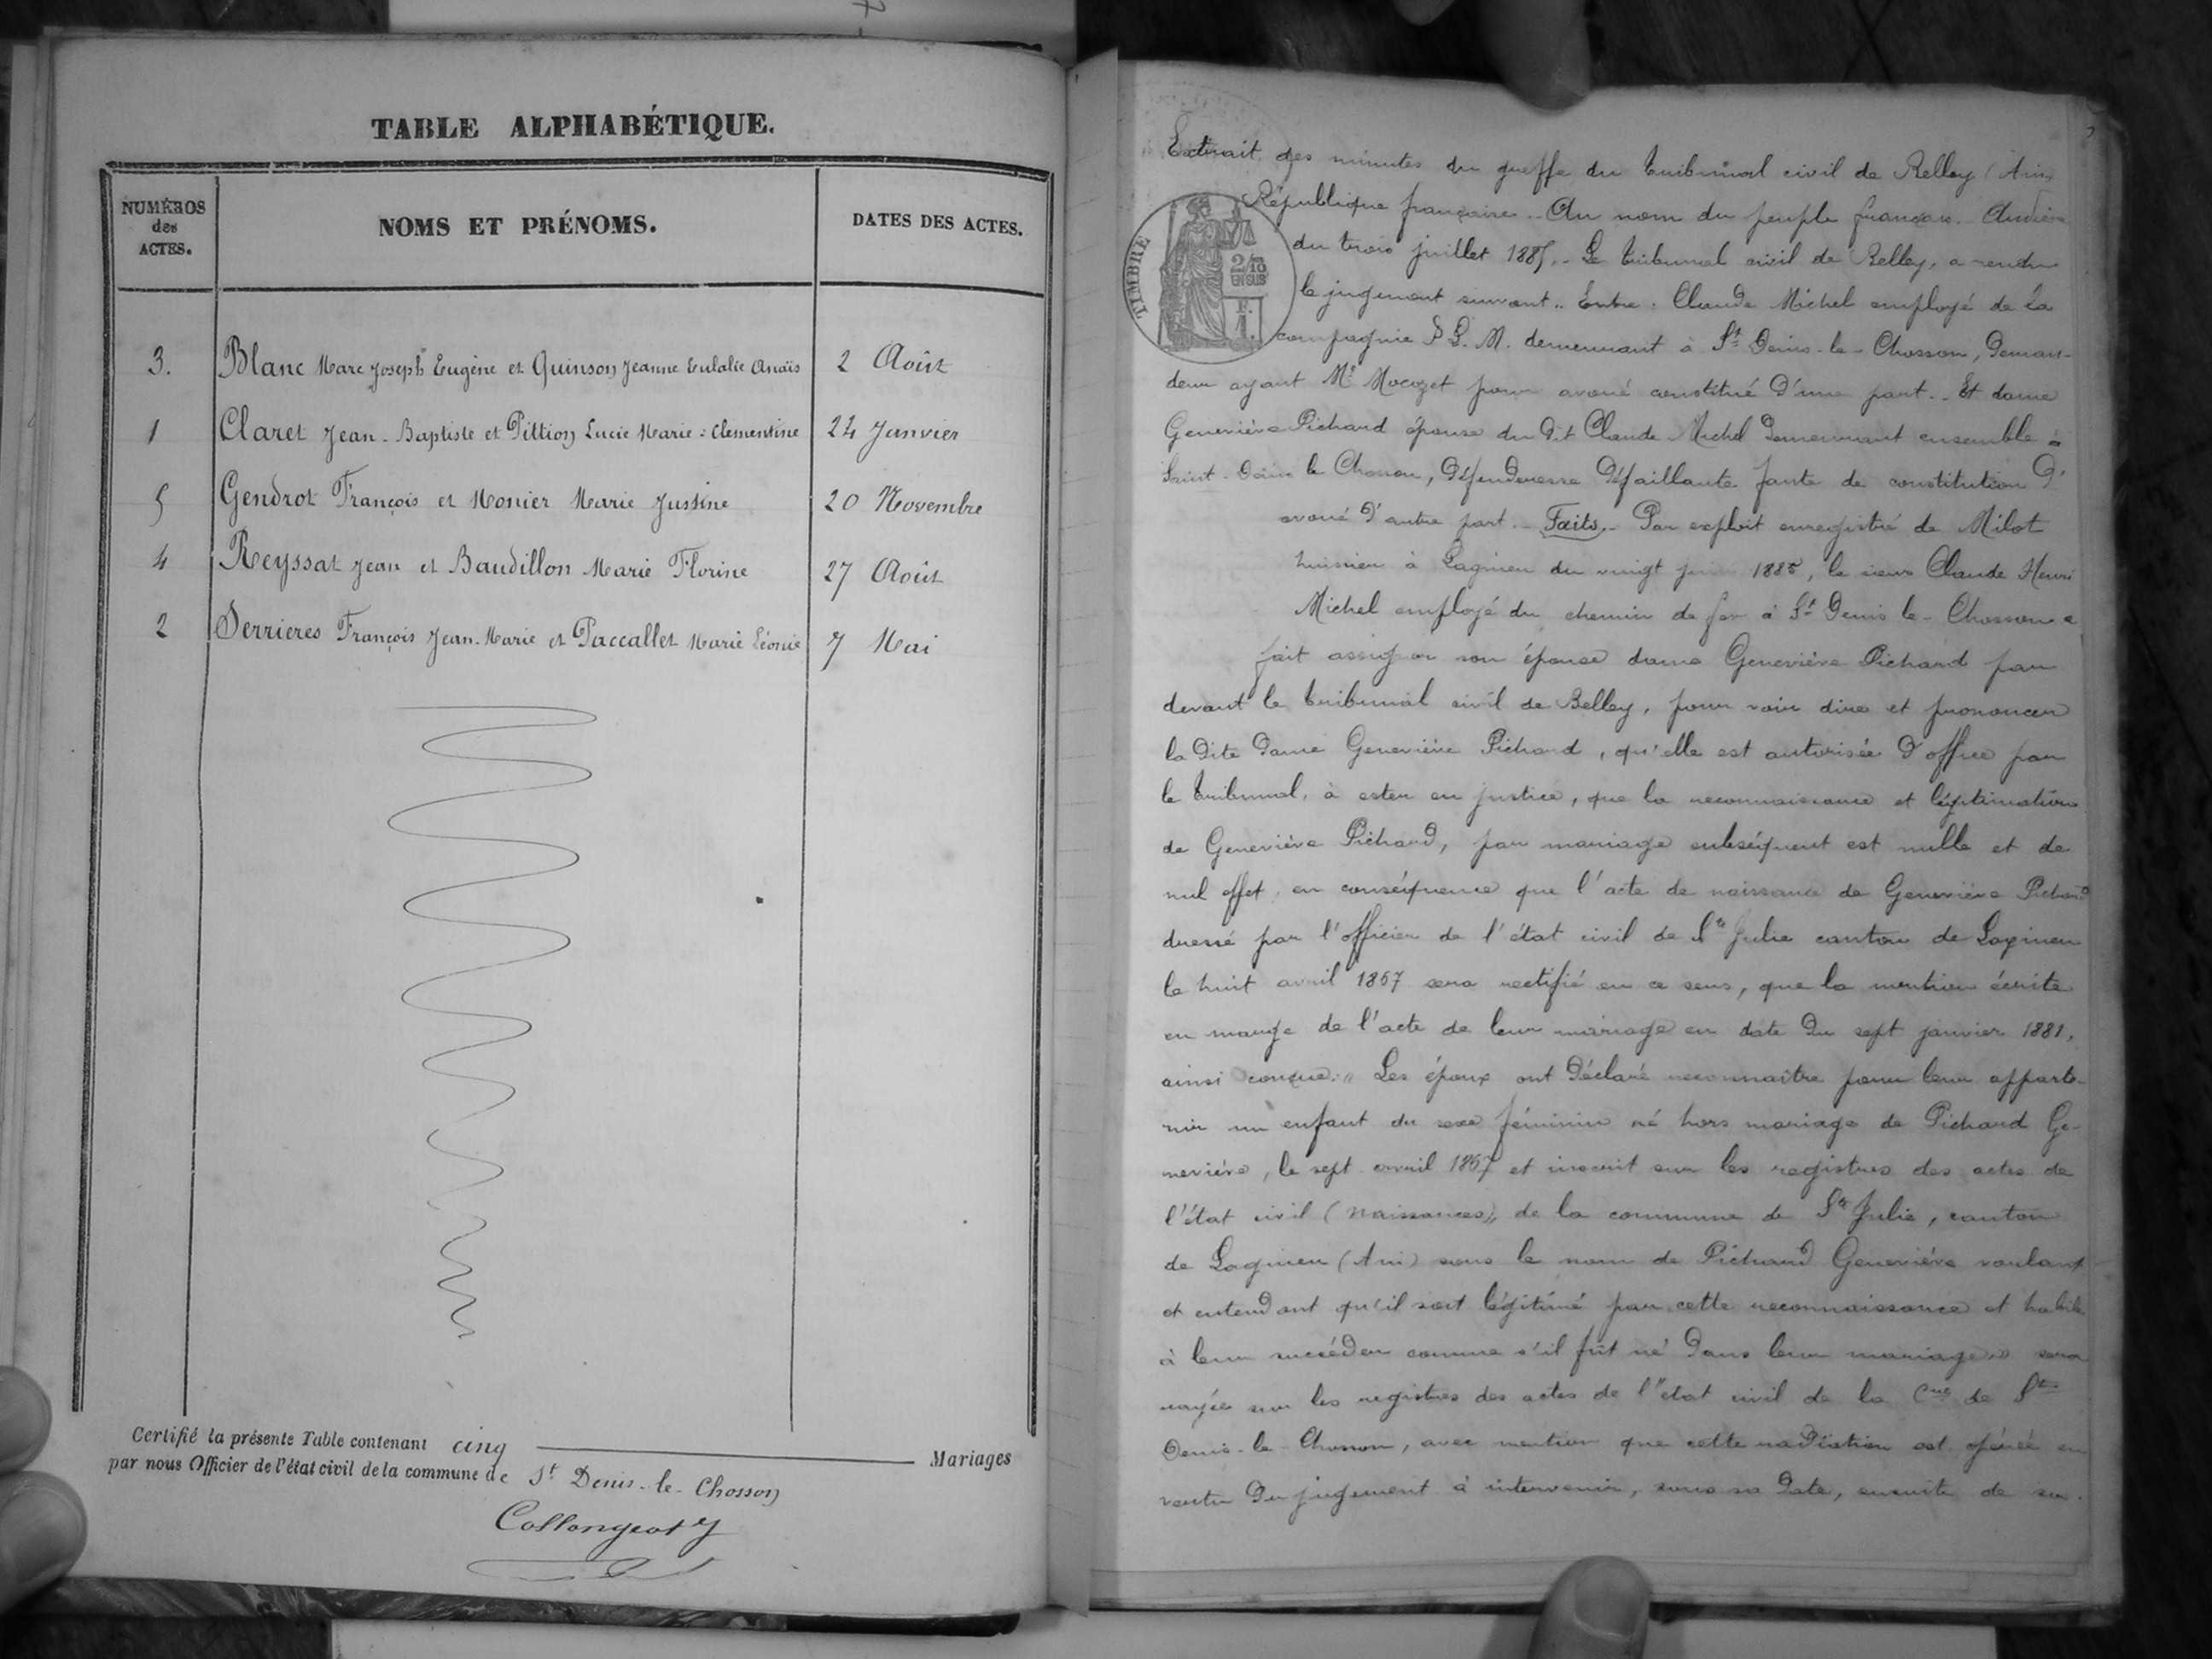 TABLE ALPHABÉTIQUE.
NUMÉROS des ACTES.
NOMS ET PRÉNOMS.
DATES DES ACTES.
3. Blanc Marc Joseph Eugène et Quinson Jeanne Eulalie Anaïs 2 Août
1 Claret Jean-Baptiste et Pittion Lucie Marie-Clementine 24 Janvier
5 Gendrot François et Monier Marie Justine 20 Novembre
4 Reyssat Jean et Baudillon Marie Florine 27 Août
2 Serrieres François Jean-Marie et Paccallet Marie Léonie 7 Mai
Certifié la présente Table contenant cinq Mariages
par nous Officier de l'état civil de la commune de St Denis-le-Chosson
Collongeat
Extrait des minutes du greffe du tribunal civil de Belley (Ain)
République française.. Au nom du peuple français. Audience
du trois juillet 1885.- Le tribunal civil de Belley, a rendu
le jugement suivant.. Entre: Claude Michel employé de la
compagnie P.L.M. demeurant à St Denis-le-Chosson, deman-
deur ayant Me Mocozet pour avoué constitué d'une part.. Et dame
Geneviève Pichard épouse du dit Claude Michel demeurant ensemble à
Saint-Denis le Chosson, défenderesse défaillante faute de constitution d'
avoué d'autre part.- Faits.- Par exploit enregistré de Milot
huissier à Lagnieu du vingt juin 1885, le sieur Claude Henri
Michel employé du chemin de fer à St Denis le-Chosson a
fait assigner son épouse dame Geneviève Pichard par
devant le tribunal civil de Belley, pour voir dire et prononcer
la dite dame Geneviève Pichard, qu'elle est autorisée d'office par
le tribunal, à ester en justice, que la reconnaissance et légitimation
de Geneviève Pichard, par mariage subséquent est nulle et de
nul effet, en conséquence que l'acte de naissance de Geneviève Pichard
dressé par l'officier de l'état civil de Ste Julie canton de Lagnieu
le huit avril 1867 sera rectifié en ce sens, que la mention écrite
en marge de l'acte de leur mariage en date du sept janvier 1881,
ainsi conçue: " Les époux ont déclaré reconnaître pour leur apparte-
nir un enfant du sexe féminin né hors mariage de Pichard Ge-
neviève, le sept avril 1867 et inscrit sur les registres des actes de
l'état civil (naissances), de la commune de Ste Julie, canton
de Lagnieu (Ain) sous le nom de Pichard Geneviève voulant
et entendant qu'il soit légitimé par cette reconnaissance et habile
à leur succéder comme s'il fût né dans leur mariage » sera
rayée sur les registres des actes de l'état civil de la Cne de St
Denis-le-Chosson, avec mention que cette radiation est opérée en
vertu du jugement à intervenir, sous sa date, ensuite de sa
TIMBRE
2/10
EN SUS
F.
1.